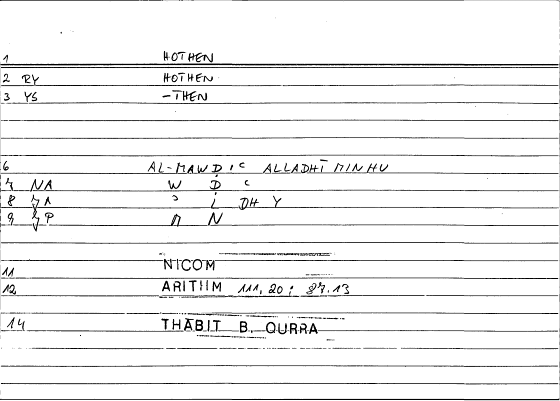 1 HOTHEN
2 RY HOTHEN
3 YS -THEN
6 AL-MAWḌIʿ ALLADHĪ MINHU
7 NA W Ḍ ʿ
8 ʾ L DH Y
9 M N
11 NICOM
12 ARITHM 111,20; 87.13
14 THĀBIT B. QURRA